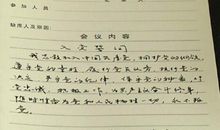 缺席人及原因
会议内容
入党誓词
我志愿加入中国共产党，拥护党的纲领，
遵守党的章程，履行党员义务，执行党的
决定，严守党的纪律，保守党的秘密，对
党忠诚，积极工作，为共产主义奋斗终身，
随时准备为党和人民牺牲一切，永不叛
党。